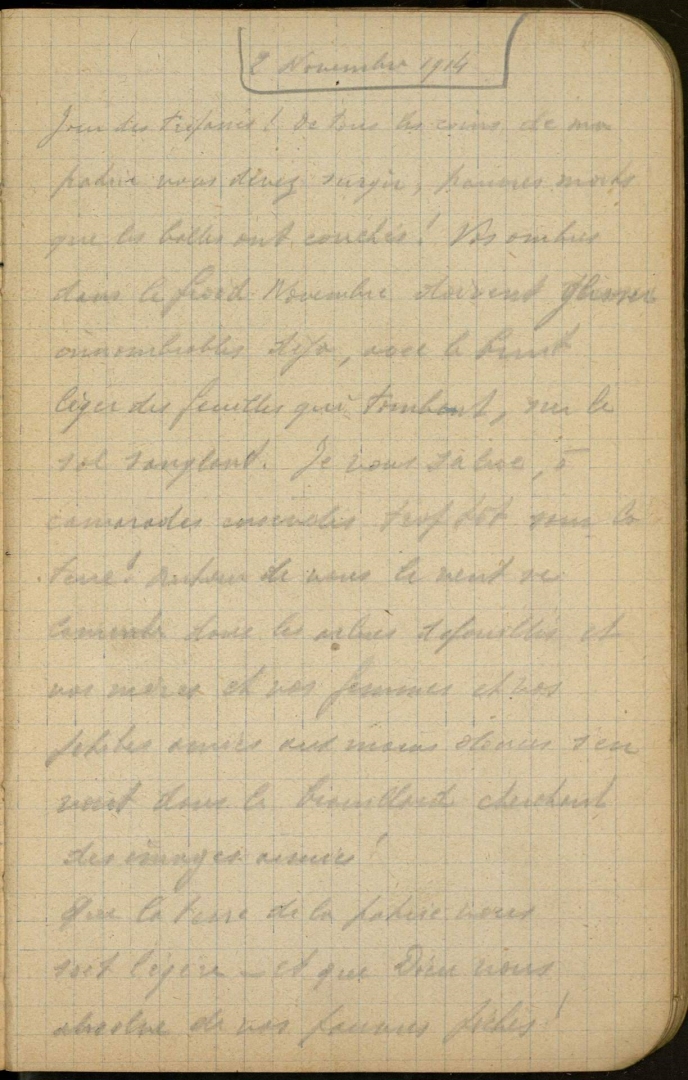 2 Novembre 1914
Jour des trépassés ! De tous les coins de ma
patrie vous devez surgir, pauvres morts
que les balles ont couchés ! Vos ombres
dans le froid Novembre doivent glisser
innombrables déjà, avec le bruit
léger des feuilles qui tombent, sur le
sol sanglant. Je vous salue, ô
camarades ensevelis trop tôt sous la
terre ! Autour de vous le vent se
lamente dans les arbres défeuillés et
vos mères et vos femmes et vos
petites amies aux mains douces s'en
vont dans le brouillard cherchant
des images aimées !
Que la terre de la patrie vous
soit légère — et que Dieu vous
absolve de vos pauvres péchés !